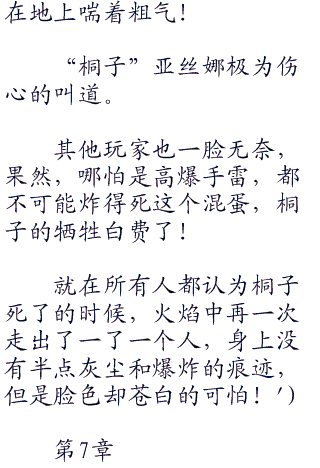 在地上喘着粗气！
“桐子”亚丝娜极为伤
心的叫道。
其他玩家也一脸无奈，
果然，哪怕是高爆手雷，都
不可能炸得死这个混蛋，桐
子的牺牲白费了！
就在所有人都认为桐子
死了的时候，火焰中再一次
走出了一了一个人，身上没
有半点灰尘和爆炸的痕迹，
但是脸色却苍白的可怕！')
第7章